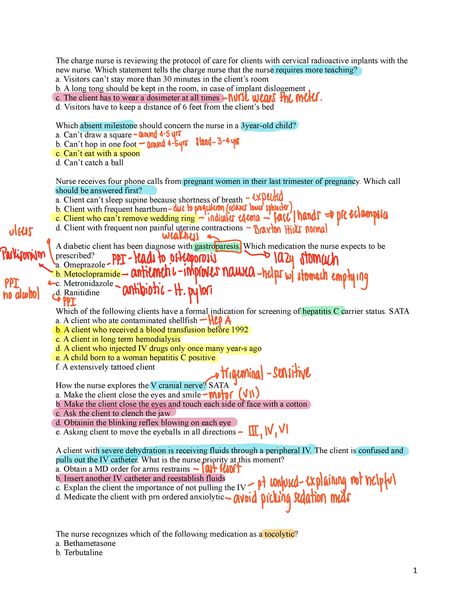 The charge nurse is reviewing the protocol of care for clients with cervical radioactive inplants with the
new nurse. Which statement tells the charge nurse that the nurse requires more teaching?
a. Visitors can't stay more than 30 minutes in the client's room
b. A long tong should be kept in the room, in case of implant dislogement
c. The client has to wear a dosimeter at all times - nurse wears the meter.
d. Visitors have to keep a distance of 6 feet from the client's bed
Which absent milestone should concern the nurse in a 3year-old child?
a. Can't draw a square - around 4-5 yrs
b. Can't hop in one foot - around 4-5yrs stand- 3-4 yrs
c. Can't eat with a spoon
d. Can't catch a ball
Nurse receives four phone calls from pregnant women in their last trimester of pregnancy. Which call
should be answered first?
a. Client can't sleep supine because shortness of breath - expected
b. Client with frequent heartburn - due to progesterone (relaxes lower sphincter)
c. Client who can't remove wedding ring - indicates edema - face/hands → preeclampsia
d. Client with frequent non painful uterine contractions - Braxton Hicks normal
weakness
ulcers
A diabetic client has been diagnose with gastroparesis. Which medication the nurse expects to be
lazy stomach
prescribed?
Parkisonism
a. Omeprazole - PPI - leads to osteoporosis
b. Metoclopramide - antiemetic - improves nausea - helps w/ stomach emptying
PPI
no alcohol
c. Metronidazole - antibiotic - H. pylori
d. Ranitidine
PPI
Which of the following clients have a formal indication for screening of hepatitis C carrier status. SATA
a. A client who ate contaminated shellfish - Hep A
b. A client who received a blood transfusion before 1992
c. A client in long term hemodialysis
d. A client who injected IV drugs only once many year-s ago
e. A child born to a woman hepatitis C positive
f. A extensively tattooed client
trigeminal - sensitive
How the nurse explores the V cranial nerve? SATA
a. Make the client close the eyes and smile - motor (VII)
b. Make the client close the eyes and touch each side of face with a cotton
c. Ask the client to clench the jaw
d. Obtainin the blinking reflex blowing on each eye
e. Asking client to move the eyeballs in all directions - III, IV, VI
A client with severe dehydration is receiving fluids through a peripheral IV. The client is confused and
pulls out the IV catheter. What is the nurse priority at this moment?
a. Obtain a MD order for arms restrains - last resort
b. Insert another IV catheter and reestablish fluids
c. Explan the client the importance of not pulling the IV - pt confused - explaining not helpful
d. Medicate the client with prn ordered anxiolytic - avoid picking sedation meds
The nurse recognizes which of the following medication as a tocolytic?
a. Bethametasone
b. Terbutaline
1